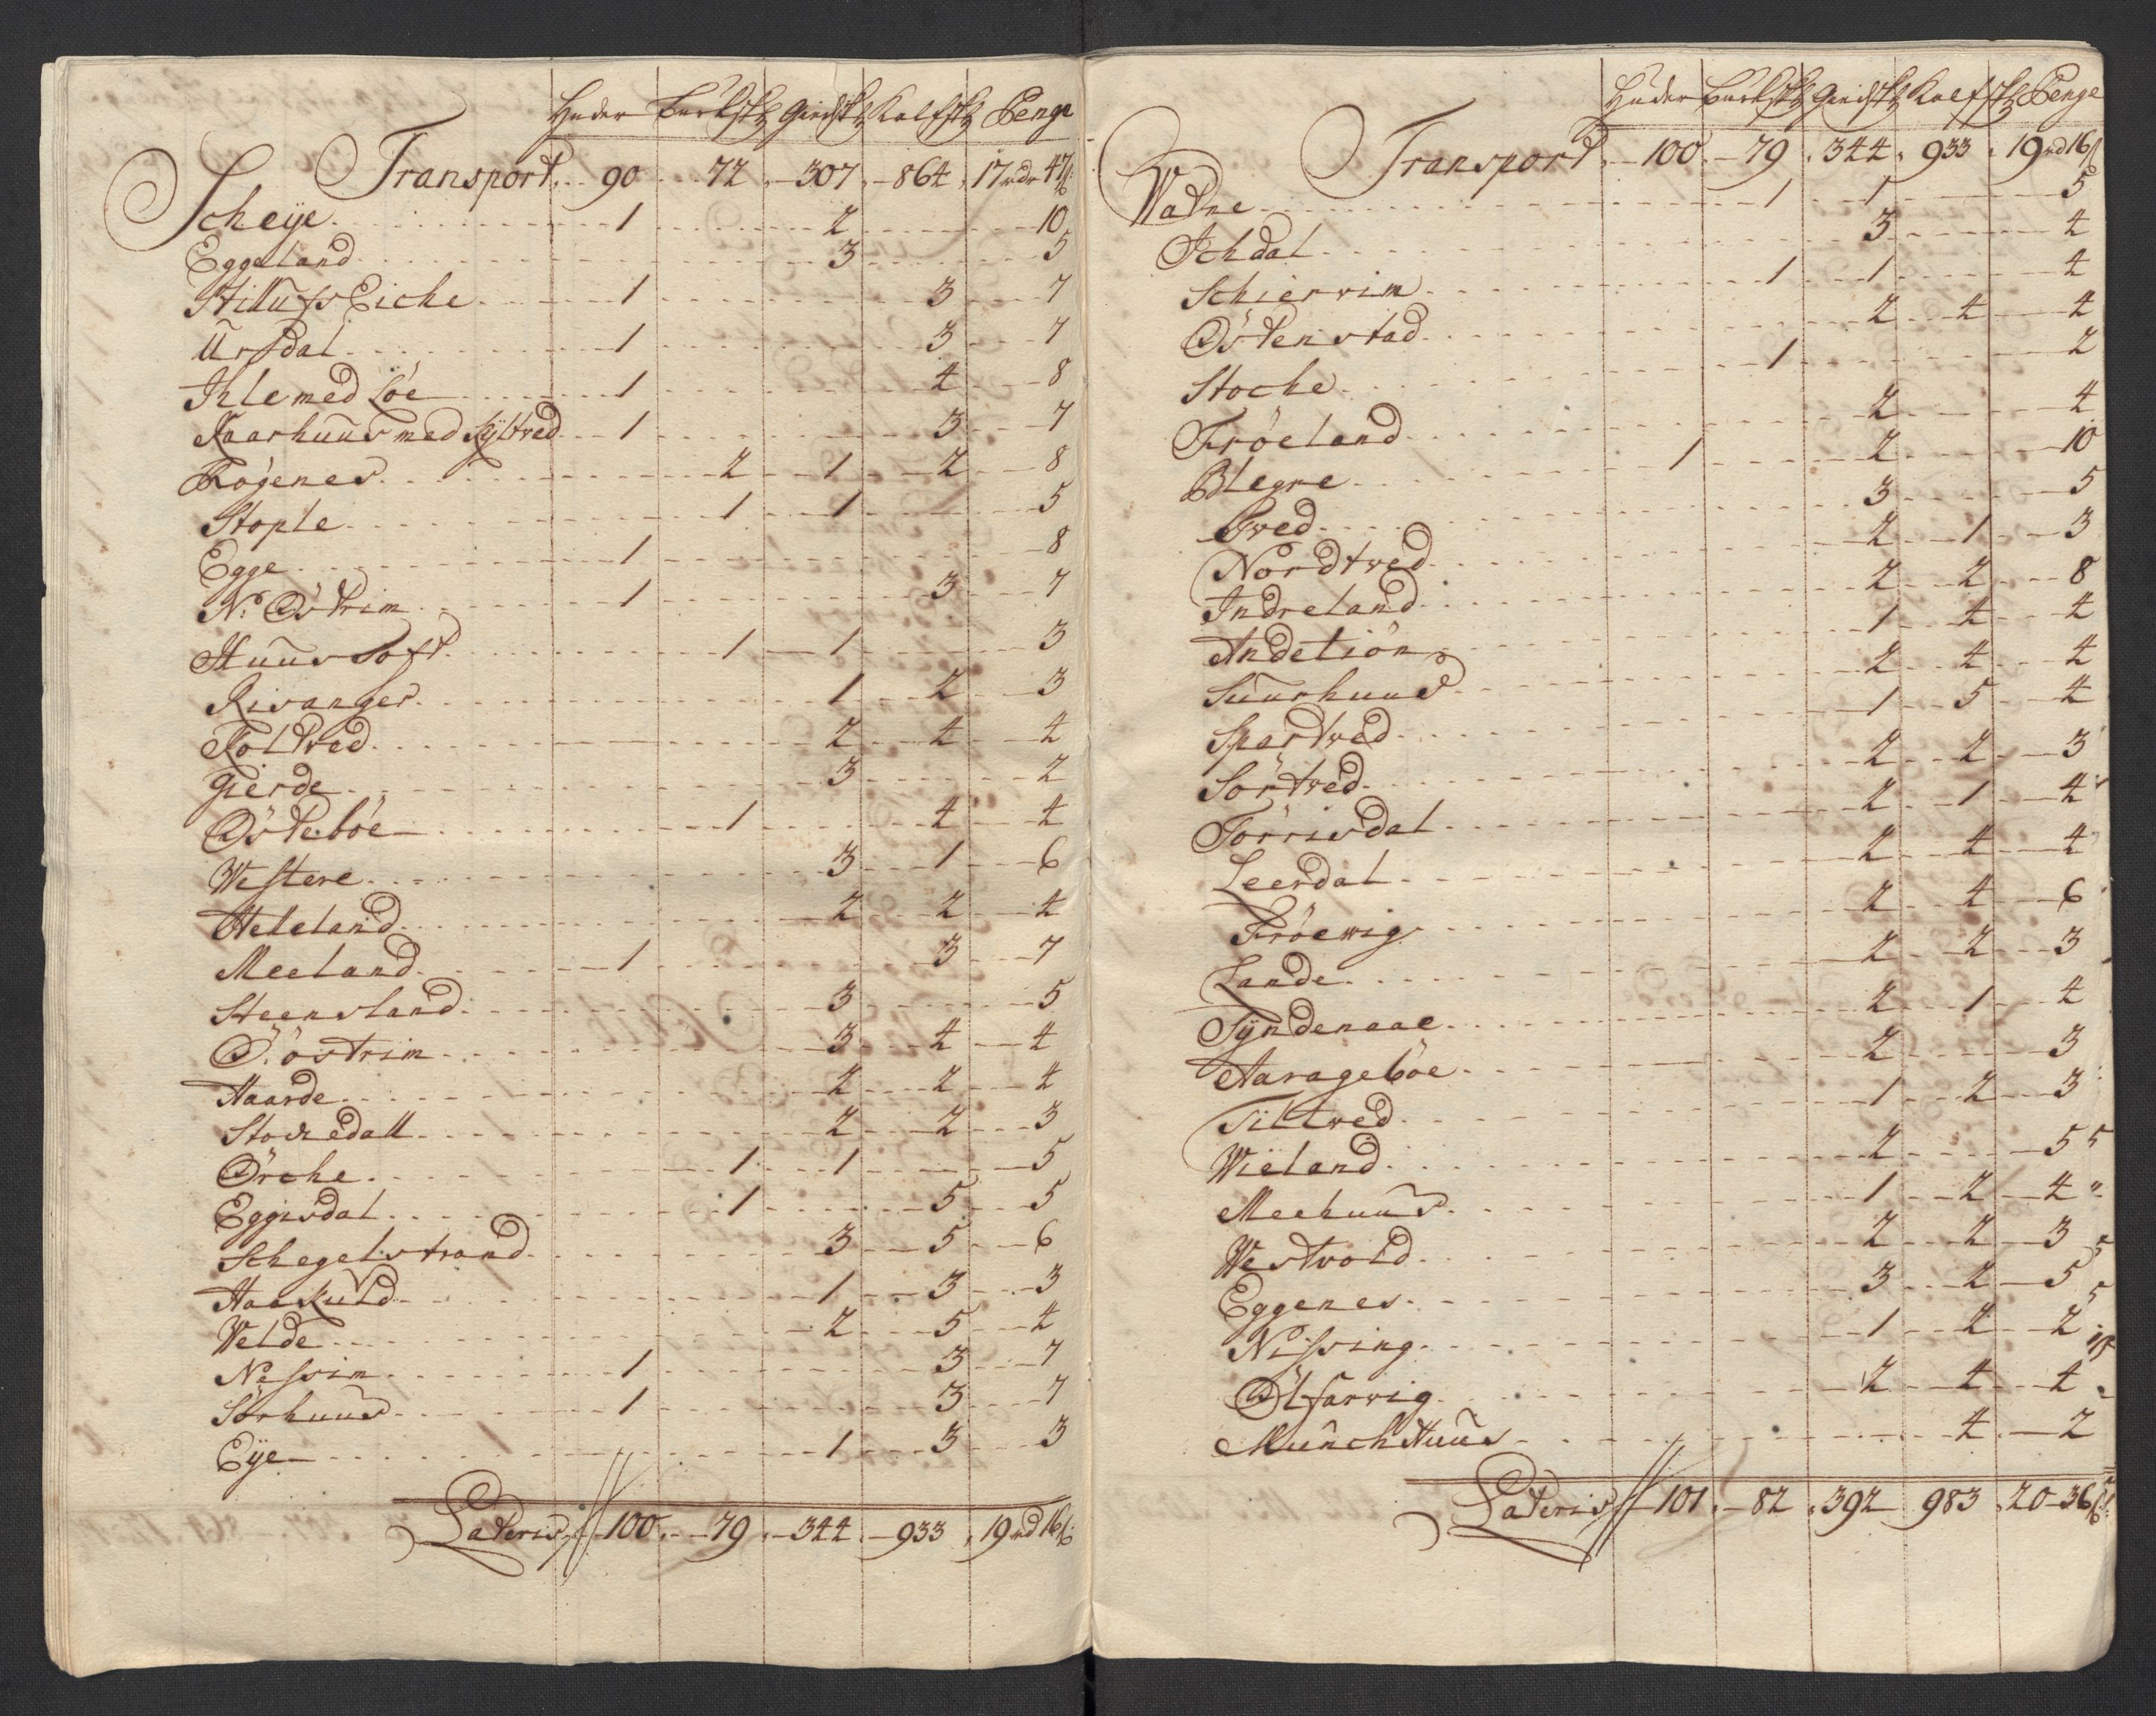 Huder Bucksk Giedsk Kalfsk Penge
Transport 90 72 307 864 17 rdr 47 ß
Scheÿe 1 2 10
Eggeland 3 5
Stillufs Eiche 1 3 7
Ursdal 1 3 7
Ihle med Løe 1 4 8
Kaarhuus med Kÿltved 1 3 7
Røgenes 2 1 2 8
Stople 1 1 5
Egge 1 8
N. Østrim 1 3 7
Stuus Toft 1 1 3
Risanger 1 2 3
Foltved 2 4 4
Gierde 3 2
Østebøe 1 4 4
Westere 3 1 6
Heleland 2 2 4
Meeland 1 3 7
Steensland 3 5
Ø. østrim 3 4 4
Haarde 2 2 4
Stokedall 2 2 3
Ørche 1 1 5
Eggisdal 1 5 5
Schegelstrand 3 5 6
Haaskuld 1 3 3
Welde 2 5 4
Nessim 1 3 7
Sørhuus 1 3 7
Eÿe 1 3 3
Lateris 100 79 344 933 19 rd 16 ß
Huder Bucksk Giedsk Kalfsk Penge
Transport 100 79 344 933 19 rd 16 ß
Watne 1 1 5
Ichdal 3 4
Schiervim 1 1 4
Østenstad 2 4 4
Stoche 1 2
Frøeland 2 4
Blegne 1 2 10
Tved 3 5
Nordtved 2 1 3
Indreland 2 2 8
Andetiøn 1 4 4
Suurhuus 2 4 4
Spertved 1 5 4
Sørtved 2 2 3
Tørrisdal 2 1 4
Leerdal 2 4 4
Frøewig 2 4 6
Lande 2 2 3
Sÿndenaae 2 1 4
Aaragebøe 2 3
Tiltved 1 2 3
Wieland 2 5
Meehuus 1 2 4
Westvold 2 2 3
Eggenes 3 2 5
Nissing 1 2 2
Ølfarvig 2 4 4
Munchhuus 4 2
Lateris 101 82 392 983 20 36 ß